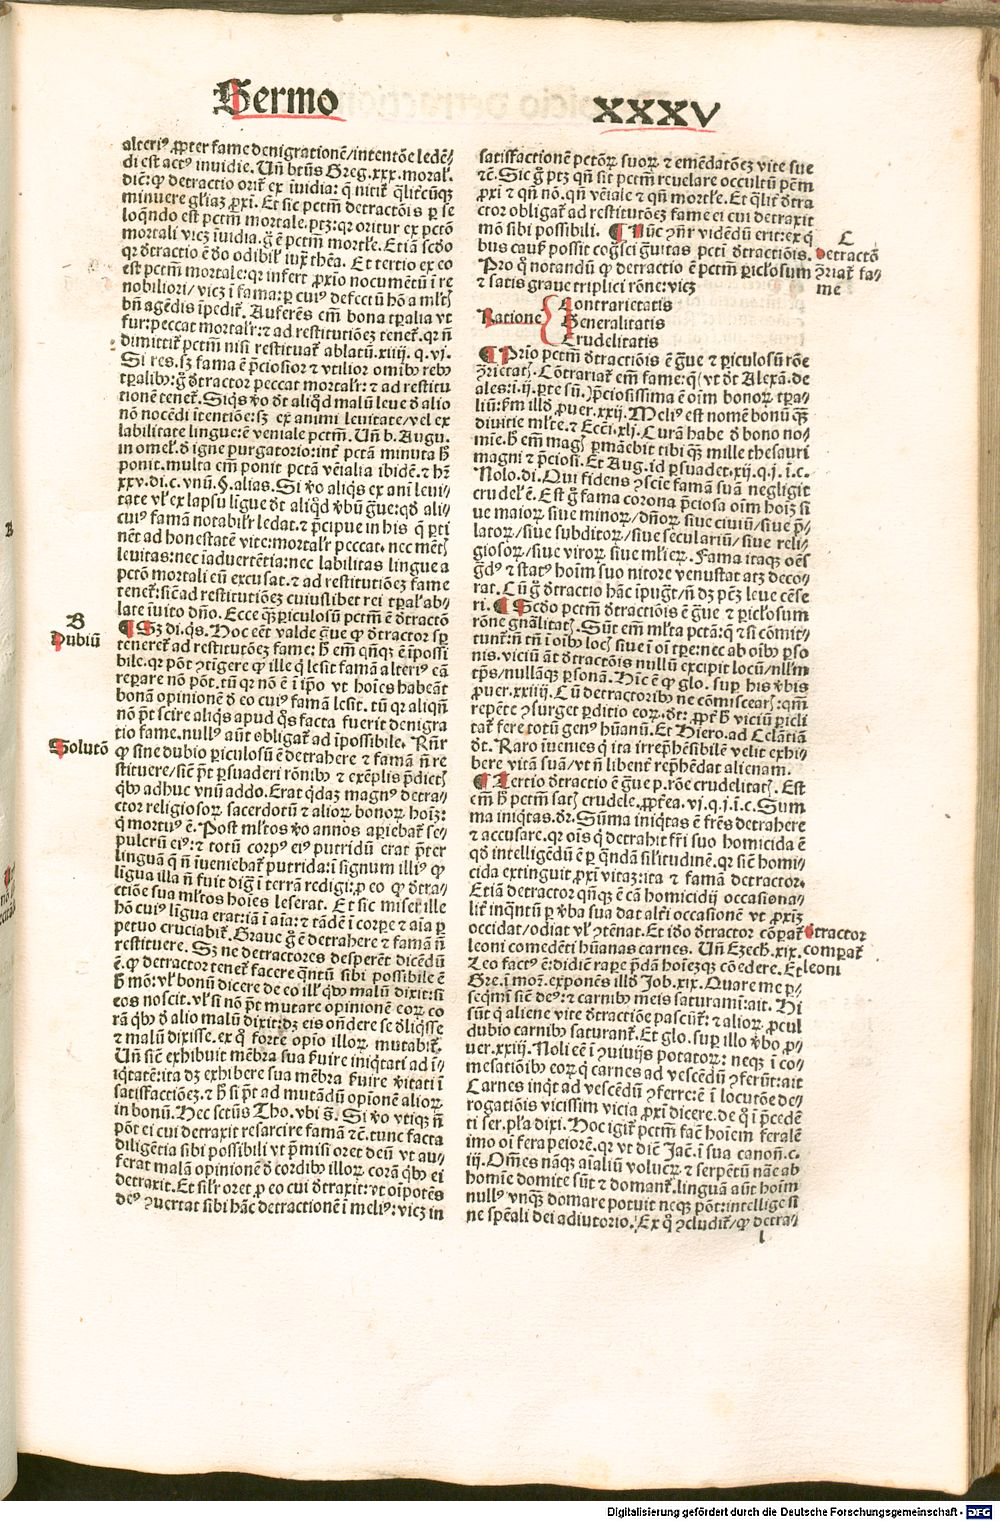 Sermo
XXXV
alteriꝰ ꝓpter fame denigrationē/intentōe ledē/
di est actꝰ inuidie. Uñ btūs Greg.xxx.moral̕.
diē: ꝙ detractio orit̉ ex īuidia: q̄ nitit̉ q̄litēcūqꝫ
minuere gl̄iaꝫ ꝓxi. Et sic pctm̄ detractōis ꝑ se
loq̄ndo est pctm̄ mortale.ptꝫ: qꝛ oritur ex pctō
mortali vicꝫ īuidia.g̊ ē pctm̄ mortl̄e. Etiā scd̄o
qꝛ d̓tractio ē d̓o odibil̕ iux̄ thēa. Et tertio ex eo
est pctm̄ mortale: qꝛ infert ꝓxīo nocumētū ī re
nobiliori/ vicꝫ ī fama: ꝑ cuiꝰ defectū hō a ml̕tꝭ
bn̄ agēdis īpedit̉. Auferēs em̄ bona tꝑalia vt
fur: peccat mortalr̄: ⁊ ad restitutiōeꝫ tenet̉. qꝛ ñ
dimittit̉ pctm̄ nisi restituat̉ ablatū.xiiij. q. vj.
Si res. sꝫ fama ē p̄ciosior ⁊ vtilior omībꝰ rebꝰ
tꝑalibꝰ: g̊ d̓tractor peccat mortalr̄: ⁊ ad restitu
tionē tenet̉. Siq̄s v̓o d̓t aliq̄d malū leue d̓ alio
nō nocēdi itentiōe: sꝫ ex animi leuitate/ vel ex
labilitate lingue: ē veniale pctm̄. Uñ b. Augu.
in omel̕. d̓ igne purgatorio: int̓ pctā minuta h̄
ponit. multa em̄ ponit pctā vēialia ibidē. ⁊ hr̄
xxv. di.c. vnū. §. alias. Si v̓o aliq̄s ex ani leui/
tate vl̕ ex lapsu līgue d̓t aliq̄d v̓bū g̊ue: qd̓ ali/
cuiꝰ famā notabilr̄ ledat. ⁊ p̄cipue in his q̄ ꝑti
nēt ad honestatē vite: mortalr̄ peccat. nec mētꝭ
leuitas: nec iaduertētia: nec labilitas lingue a
pctō mortali eū excusat. ⁊ ad restitutiōeꝫ fame
tenet̉: sicē ad restitutiōeꝫ cuiuslibet rei tꝑal̕ ab/
late īuito dño. Ecce qꝫ ꝑiculosū pctm̄ ē d̓tractō
B
Dubiū
¶ Sꝫ di.q̄s. Hoc eēt valde g̊ue ꝙ d̓tractor sꝑ
teneret̉ ad restitutōeꝫ fame: h̄ em̄ qn̄qꝫ ē īpossi
bile. qꝛ pōt ↄtīgere ꝙ ille q̄ lesit famā alteriꝰ eā
reꝑare nō pōt. tū qꝛ nō ē ī ip̄o vt hoīes habeāt
bonā opinionē d̓ eo cuiꝰ famā lesit. tū qꝛ aliqn̄
nō p̄t scire aliq̄s apud q̄s facta fuerit denigra
tio fame. nullꝰ aūt obligat̉ ad īpossibile. Rn̄r
Solutō
ꝙ sine dubio ꝑiculosū ē detrahere ⁊ famā ñ re
stituere/ sicē p̄t ꝑsuaderi rōnibꝰ ⁊ exēplis p̄dictꝭ
q̄bꝰ adhuc vnū addo. Erat q̄daꝫ magnꝰ detra/
ctor religiosoꝝ sacerdotū ⁊ alioꝝ bonoꝝ hoīꝫ:
q̄ mortuꝰ ē. Post ml̕tos v̓o annos aꝑiebat̉ se/
pulcrū eiꝰ: ⁊ totū corpꝰ eiꝰ putridū erat p̄ter
linguā q̄ ñ īueniebat̉ putrida: ī signum illiꝰ ꝙ
līgua illa ñ fuit digᷓ ī terrā redigi: ꝓ eo ꝙ d̓tra/
ctiōe sua ml̕tos hoīes leserat. Et sic miser ille
hō cuiꝰ līgua erat: iā ī aīa: ⁊ tādē ī corꝑe ⁊ aīa ꝑ
petuo cruciabit̉. Graue g̊ ē detrahere ⁊ famā ñ
restituere. Sꝫ ne detractores desperēt dicēdū
ē. ꝙ detractor tenet̉ facere q̄ntū sibi possibile ē
h̄ mō: vl̕ bonū dicere de eo ill̕ q̄bꝰ malū dixit: si
eos noscit. vl̕ si nō p̄t mutare opinionē eoꝝ co
rā q̄bꝰ d̓ alio malū dixit: dꝫ eis on̄dere se d̓liq̄sse
⁊ malū dixisse. ex q̊ forte opīo illoꝝ mutabit̉.
Uñ sicē exhibuit mēbra sua s̓uire iniq̄tati ad ī/
iq̄tatē: ita dꝫ exhibere sua mēbra s̓uire v̓itati ī
satisfactiōeꝫ. ⁊ h̄ si p̄t ad mutādū opionē alioꝝ
in bonū. Hec sctūs Tho. vbi s̄. Si v̓o vtiqꝫ ñ
pōt ei cui detraxit resarcire famā ⁊c̄. tunc facta
diligētia sibi possibili vt p̄misi oret deū vt au/
ferat malā opinionē d̓ cordibꝰ illoꝝ corā q̄bꝰ ei
detraxit. Et silr̄ oret ꝓ eo cui d̓traxit: vt oīpotēs
deꝰ ↄuertat sibi hāc detractionē ī meliꝰ: vicꝫ in
satisfactionē pctōꝝ suoꝝ ⁊ emēdatōeꝫ vite sue
⁊c̄. Sic g̊ ptꝫ qn̄ sit pctm̄ reuelare occultū pctm̄
ꝓxi ⁊ qn̄ nō. qn̄ vēiale ⁊ qn̄ mortl̄e. Et q̄lit̓ d̓tra
ctor obligat̉ ad restitutōeꝫ fame ei cui detraxit
mō sibi possibili. ¶ Nūc ↄn̄r vidēdū erit: ex q̄
bus caus̄ possit cogsci g̊uitas pcti d̓tractiōis.
Pro q̊ notandū ꝙ detractio ē pctm̄ ꝑicl̕osum
⁊ satis graue triplici rōne: vicꝫ
C
Detractō
ↄ̄riat̉ fa/
me
Ratione
Contrarietatis
Generalitatis
Crudelitatis
¶ Prīo pctm̄ d̓tractiōis ē g̊ue ⁊ ꝑiculosū rōe
ↄ̄rietatꝭ. Cōtrariat̉ em̄ fame: q̄ (vt d̓t Alexā. de
ales: i. ij. ꝑte sū.) p̄ciosissima ē oīm bonoꝝ tꝑa/
liū: s̄m illd̓ ꝓuer.xxij. Meliꝰ est nomē bonū qꝫ
diuitie ml̕te. ⁊ Ecci̓.xlj. Curā habe d̓ bono no/
mīe. h̄ em̄ magꝭ ꝑmāebit tibi qꝫ mille thesauri
magni ⁊ p̄ciosi. Et Aug. id ꝑsuadet.xij.q.j. ī.c.
Nolo. di. Qui fidens ↄscīe famā suā negligit
crudel̕ ē. Est g̊ fama corona p̄ciosa oīm hoīꝫ si
ue maioꝝ siue minoꝝ/ dn̄oꝝ siue ciuiū/ siue p̄/
latoꝝ/ siue subditoꝝ/ siue seculariū/ siue reli/
giosoꝝ/ siue viroꝝ siue ml̕ieꝝ. Fama itaqꝫ oēs
g̊dꝰ ⁊ statꝰ hoīm suo nitore venustat atqꝫ deco/
rat. Cū g̊ d̓tractio hāc īpugᷓt/ ñ dꝫ pctꝫ leue cēse
ri. ¶ Scd̄o pctm̄ d̓tractiōis ē g̊ue ⁊ ꝑicl̕osum
rōne gn̄alitatꝭ. Sūt em̄ ml̕ta pctā: q̄ ⁊ si cōmit/
tunt̉: ñ tn̄ ī oībꝰ locꝭ siue ī oī tꝑe: nec ab oībꝰ ꝑso
nis. viciū āt d̓tractōis nullū excipit locū/ nll̕m
tp̄s/ nullāqꝫ ꝑsonā. Hīc ē ꝙ glo. suꝑ his v̓bis
ꝓuer.xxiiij. Cū detractoribꝰ ne cōmiscearꝭ: qm̄
repēte ↄsurget ꝑditio eoꝝ. d̓t: ꝓpt̓ h̄ viciū ꝑicli
tat̉ fere totū genꝰ hūanū. Et Hiero. ad Celātiā
d̓t. Raro īuenies q̄ ita irrep̄hēsibilē velit exhi/
bere vitā suā/ vt ñ libent̓ rep̄hēdat alienam.
¶ Tertio d̓tractio ē g̊ue ꝓ. rōe crudelitatꝭ. Est
em̄ h̄ pctm̄ satꝭ crudele. ꝓpt̓ea. vj.q.j.ī.c. Sum
ma iniq̄tas. d̓r. Sūma iniq̄tas ē fr̄es detrahere
⁊ accusare. qꝛ oīs q̄ detrahit fr̄i suo homicida ē
qd̓ intelligēdū ē ꝑ q̄ndā sil̕itudinē. qꝛ sicē homi/
cida extinguit ꝓxi vitaꝫ: ita ⁊ famā detractor.
Etiā detractor qn̄qꝫ ē cā homicidij occasiona/
lit̓ inq̄ntū ꝑ v̓ba sua dat alt̓i occasionē vt ꝓxīꝫ
occidat/ odiat vl̕ ↄtēnat. Et id̓o d̓tractor cōꝑat̉
leoni comedēti hūanas carnes. Uñ Ezech̄. xix.
Leo factꝰ ē: didicē raꝑe p̄dā hoīezqꝫ cōedere. Et
D̓tractor
comparat̉
leoni
Gre. ī mor̄. exponēs illd̓ Job. xix. Quare me ꝑ/
seqmī sicē deꝰ: ⁊ carnibꝰ meis saturamī: ait. Hi
sūt q̄ aliene vite d̓tractiōe pascūt̉: ⁊ alioꝝ ꝓcul
dubio carnibꝰ saturant̉. Et glo. suꝑ illo v̓bo ꝓ/
uer.xxiij. Noli eē ī ↄuiuijs potatoꝝ: neqꝫ ī co/
mesatiōibꝰ eoꝝ q̄ carnes ad vescēdū ↄferūt: ait
Carnes inq̄t ad vescēdū ↄferre: ē ī locutōe de/
rogatiōis vicissim vicia ꝓxi dicere. de q̊ ī p̄cedē
ti ser. pl̄a dixi. Hoc igit̉ pctm̄ facē hoīem feralē
imo oī fera peiorē. qꝛ vt dicē Jac̄. ī sua canoñ.c.
iij. Om̄es nāqꝫ aīaliū volucꝝ ⁊ serpētū nāe ab
homīe domite sūt ⁊ domant̉. linguā aūt hoīm
nullꝰ vnqꝫ domare potuit neqꝫ pōt: intellige si
ne spēali dei adiutorio. Ex q̊ ↄcludit̉/ ꝙ detra/
l
Digitalisierung gefördert durch die Deutsche Forschungsgemeinschaft - DFG